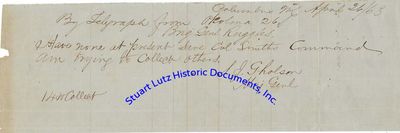 Columbus Mi April 26/63
By Telegraph from Okolona 26
Brig Genl Ruggles
I Have none at present save Col Smiths Command
am trying to Collect others.
S. J. Gholson
Maj Genl
14 W Collect
Stuart Lutz Historic Documents, Inc.